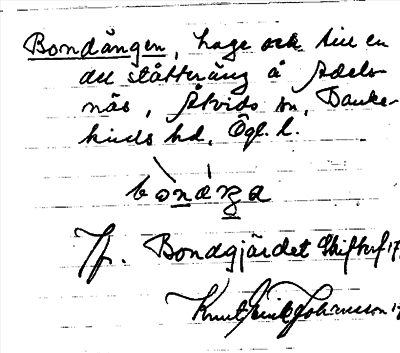 Bondängen, hage och till en
del slåtteräng å Adels-
näs, Åtvids sn, Banke-
kinds hd, Ögl. l.
Jfr. Bondgjärdet
Knut Erik Johansson